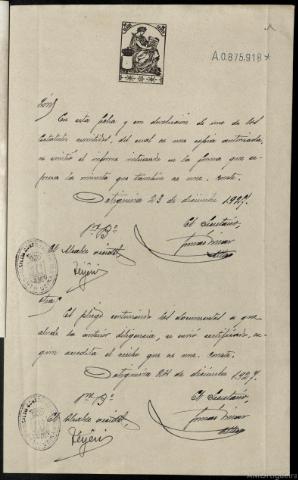 A.0.875.918*
En esta fecha y en devolución de uno de los
estados remitidos, del cual es una copia autorizada,
se emitió el informe interesado en la forma que ex-
presa la minuta que también se une. Conste.
23 de diciembre 1927.
El Secretario,
Vº Bº
El Alcalde
Otra:
El pliego conteniendo los documentos a que
alude la anterior diligencia, se envió certificado, se-
gún acredita el recibo que se une. Conste.
24 de diciembre 1927.
El Secretario,
Vº Bº
El Alcalde